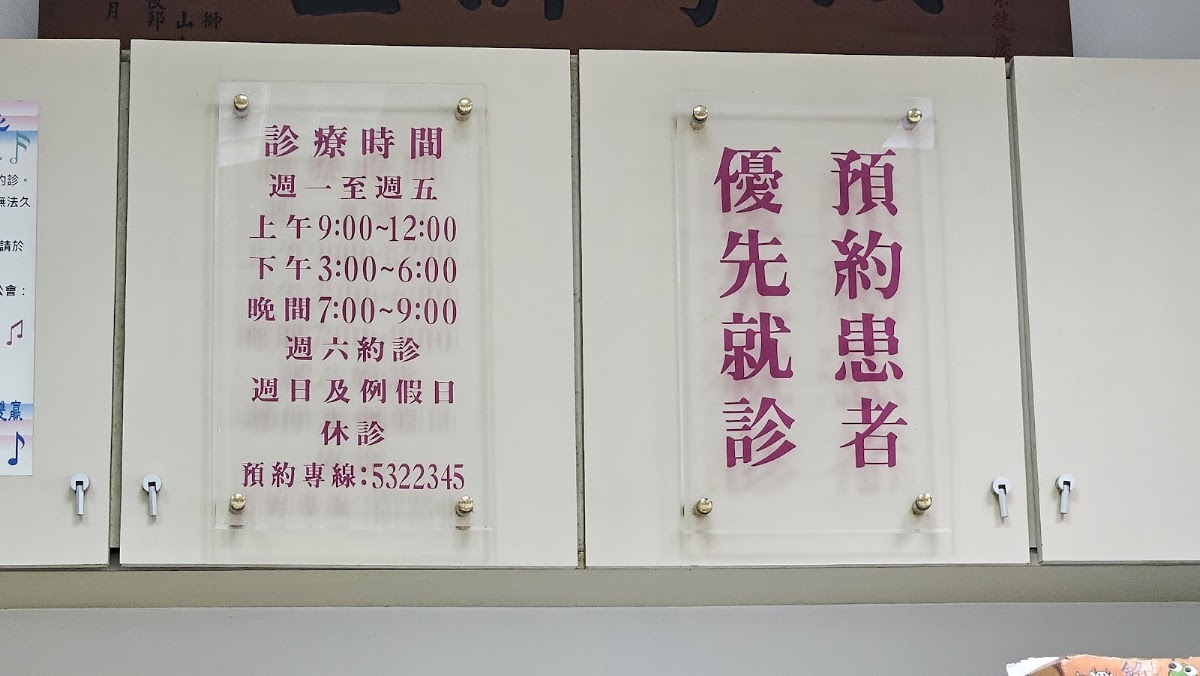 獅
山
月
約診。
無法久
請於
公會：
雙贏
診療時間
週一至週五
上午9:00~12:00
下午3:00~6:00
晚間7:00~9:00
週六約診
週日及例假日
休診
預約專線:5322345
預約患者
優先就診